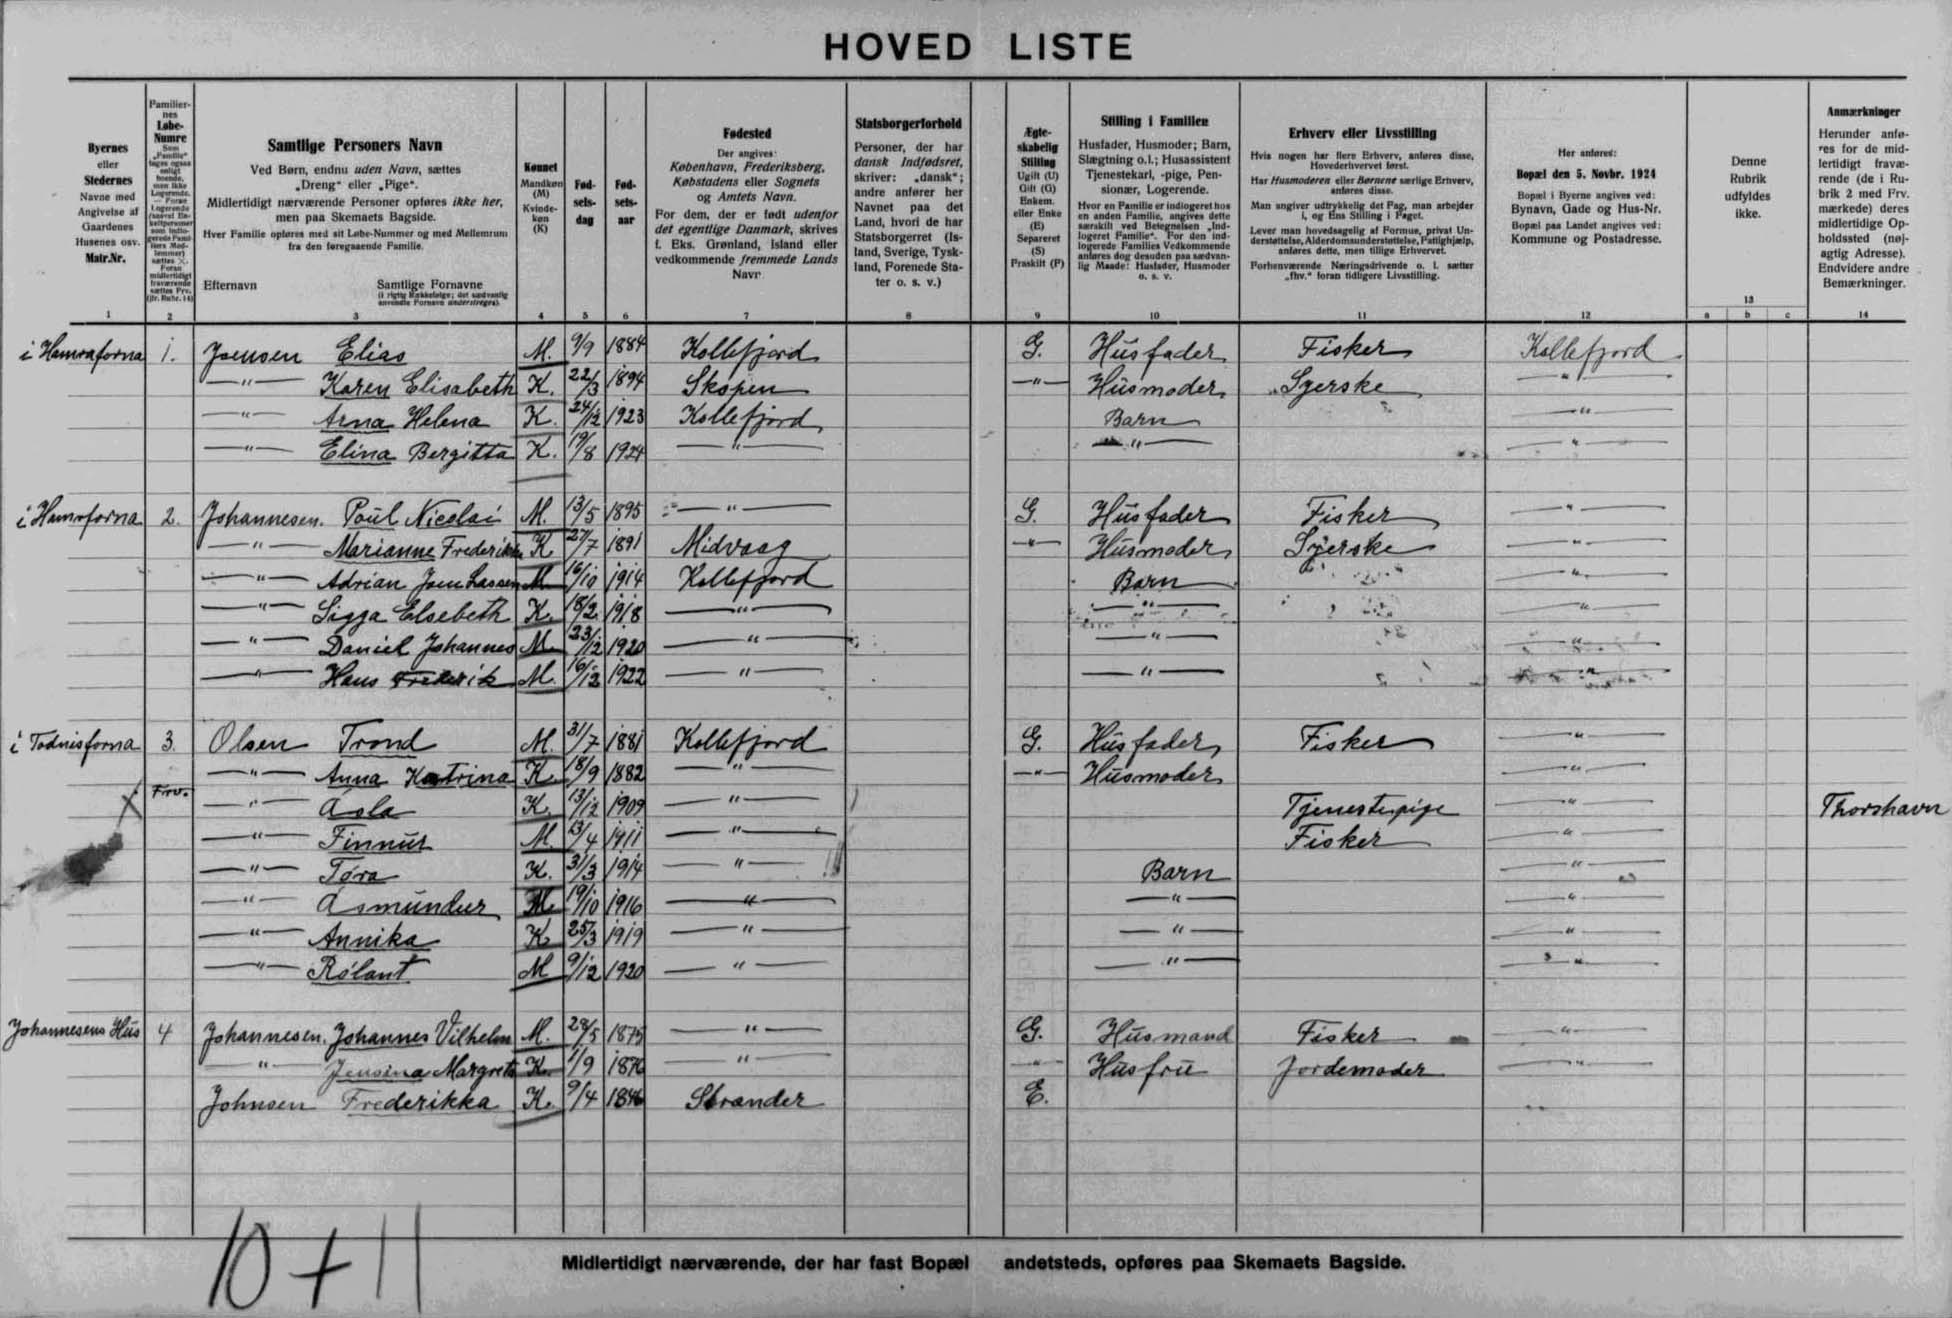 HOVED LISTE
Byernes
eller
Stedernes
Navne med
Angivelse af
Gaardenes
Husenes osv.
Matr.Nr.
1
Familier-
nes
Løbe-
Numre
Som
„Familie“
tages ogsaa
enligt
boende,
men ikke
Logerende.
— Foran
Logerende
(saavel En-
keltpersoner
som indlo-
gerede Fami-
liers Med-
lemmer)
sættes X.
Foran
midlertidigt
fraværende
sættes Frv.
(jfr. Rubr. 14)
2
Samtlige Personers Navn
Ved Børn, endnu uden Navn, sættes
„Dreng“ eller „Pige“.
Midlertidigt nærværende Personer opføres ikke her,
men paa Skemaets Bagside.
Hver Familie opføres med sit Løbe-Nummer og med Mellemrum
fra den foregaaende Familie.
Efternavn Samtlige Fornavne
(i rigtig Rækkefølge; det sædvanlig
anvendte Fornavn understreges).
3
Kønnet
Mandkøn
(M)
Kvinde-
køn
(K)
4
Fød-
sels-
dag
5
Fød-
sels-
aar
6
Fødested
Der angives:
København, Frederiksberg,
Købstadens eller Sognets
og Amtets Navn.
For dem, der er født udenfor
det egentlige Danmark, skrives
f. Eks. Grønland, Island eller
vedkommende fremmede Lands
Navn
7
Statsborgerforhold
Personer, der har
dansk Indfødsret,
skriver: „dansk“;
andre anfører her
Navnet paa det
Land, hvori de har
Statsborgerret (Is-
land, Sverige, Tysk-
land, Forenede Sta-
ter o. s. v.)
8
Ægte-
skabelig
Stilling
Ugift (U)
Gift (G)
Enkem.
eller Enke
(E)
Separeret
(S)
Fraskilt (F)
9
Stilling i Familien
Husfader, Husmoder; Barn,
Slægtning o.l.; Husassistent
Tjenestekarl, -pige, Pen-
sionær, Logerende.
Hvor en Familie er indlogeret hos
en anden Familie, angives dette
særskilt ved Betegnelsen „Ind-
logeret Familie“. For den ind-
logerede Families Vedkommende
anføres dog desuden paa sædvan-
lig Maade: Husfader, Husmoder
o. s. v.
10
Erhverv eller Livsstilling
Hvis nogen har flere Erhverv, anføres disse,
Hovederhvervet først.
Har Husmoderen eller Børnene særlige Erhverv,
anføres disse.
Man angiver udtrykkelig det Fag, man arbejder
i, og Ens Stilling i Faget.
Lever man hovedsagelig af Formue, privat Un-
derstøttelse, Alderdomsunderstøttelse, Fattighjælp,
anføres dette, men tillige Erhvervet.
Forhenværende Næringsdrivende o. l. sætter
„fhv.“ foran tidligere Livsstilling.
11
Her anføres:
Bopæl den 5. Novbr. 1924
Bopæl i Byerne angives ved:
Bynavn, Gade og Hus-Nr.
Bopæl paa Landet angives ved:
Kommune og Postadresse.
12
Denne
Rubrik
udfyldes
ikke.
13
a b c
Anmærkninger
Herunder anfø-
res for de mid-
lertidigt fravæ-
rende (de i Ru-
brik 2 med Frv.
mærkede) deres
midlertidige Op-
holdssted (nøj-
agtig Adresse).
Endvidere andre
Bemærkninger.
14
i Hamraforna 1. Joensen Elias M. 9/9 1884 Kollefjord G. Husfader Fisker Kollefjord
—"— Karen Elisabeth K. 22/3 1894 Skopen —"— Husmoder Syerske —"—
—"— Arna Helena K. 24/12 1923 Kollefjord Barn —"—
—"— Elina Bergitta K. 19/8 1924 —"— —"— —"—
i Hamraforna 2. Johannesen. Poul Nicolai M. 13/5 1895 —"— G. Husfader Fisker —"—
—"— Marianne Frederikka K 27/7 1891 Midvaag —"— Husmoder Syerske —"—
—"— Adrian Joen Lassen M. 16/10 1914 Kollefjord Barn —"—
—"— Sigga Elsebeth K. 18/2 1918 —"— —"— —"—
—"— Daniel Johannes M. 23/12 1920 —"— —"— —"—
—"— Hans Frederik M. 16/12 1922 —"— —"— —"—
i Todnisforna 3. Olsen Trond M. 31/7 1881 Kollefjord G. Husfader Fisker —"—
—"— Anna Katrina K. 18/9 1882 —"— —"— Husmoder —"—
X Frv. —"— Asla K. 13/12 1909 —"— Tjenestepige —"— Thorshavn
—"— Finnur M. 13/4 1911 —"— Fisker —"—
—"— Tóra K. 31/3 1914 —"— Barn —"—
—"— Asmundur M. 19/10 1916 —"— —"— —"—
—"— Annika K. 25/3 1919 —"— —"— —"—
—"— Rólant M 9/12 1920 —"— —"— —"—
Johannesens Hus 4 Johannesen. Johannes Vilhelm M. 28/5 1875 —"— G. Husmand Fisker —"—
—"— Jensina Margreta K. 1/9 1876 —"— —"— Husfru Jordemoder —"—
Johnsen Frederikka K. 9/4 1846 Strander E.
10 + 11
Midlertidigt nærværende, der har fast Bopæl andetsteds, opføres paa Skemaets Bagside.